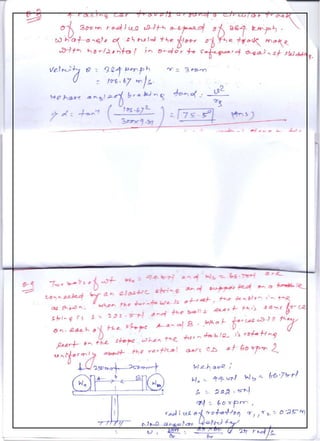 A racing car travels around a circular track
of 300m radius with a speed of 384 kmph.
what angle α should the floor of the track make
with horizontal in order to safeguard against skidding.
Velocity v = 384 kmph r = 300m
= 106.67 m/s
we have angle of braking tan α = v²/rg
α = tan⁻¹ (106.67²/300×9.81) = 75.5° (Ans)
Two balls of wt W₁ = and W₂ = 66.75N are
connected by an elastic string and supported on a turntable
as shown. When the turntable is at rest, the tension in the
string is S = 222.5N and the balls exert this same force
on each of the stops A and B. What forces will they
exert on the stops when the turn table is rotating
uniformly about the vertical axis CD at 60 rpm?
250mm 250mm
We have:
W₁ W₂
W₂ = 66.75N
S = 222.5N
n = 60 rpm,
radius of rotation r₁, r₂ = 0.25m
angular velocity